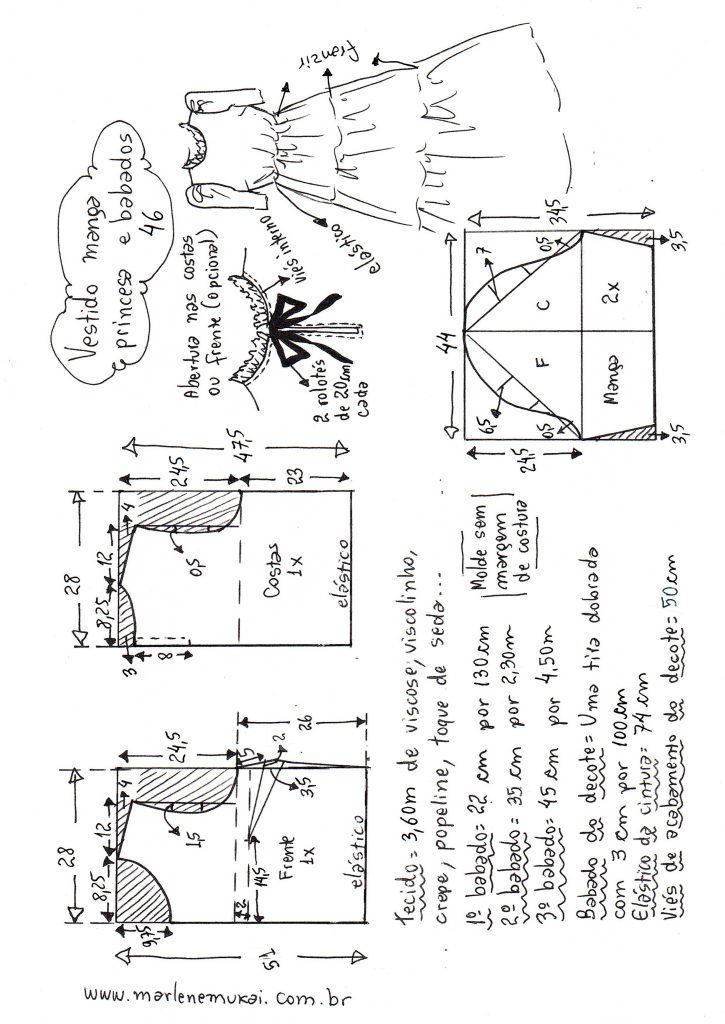 Vestido manga
princesa e babados
46
Franzir
elástico
Abertura nas costas
ou frente (opcional)
viés interno
2 rolotés
de 20cm
cada
28
8,25
12
4
24,5
9,75
1,5
5
2
3,5
26
2
14,5
Frente
1x
elástico
51
28
8,25
12
4
24,5
47,5
3
8
0,5
23
Costas
1x
elástico
44
34,5
24,5
6,5
7
0,5
0,5
F
C
Manga
2x
3,5
3,5
Tecido = 3,60m de viscose, viscolinho,
crepe, popeline, toque de seda...
1º babado = 22 cm por 130 cm
2º babado = 35 cm por 2,30m
3º babado = 45 cm por 4,50m
Molde sem
margem
de costura
Babado do decote = Uma tira dobrada
com 3 cm por 100 cm
Elástico da cintura = 74 cm
Viés de acabamento do decote = 50 cm
www.marlenemukai.com.br